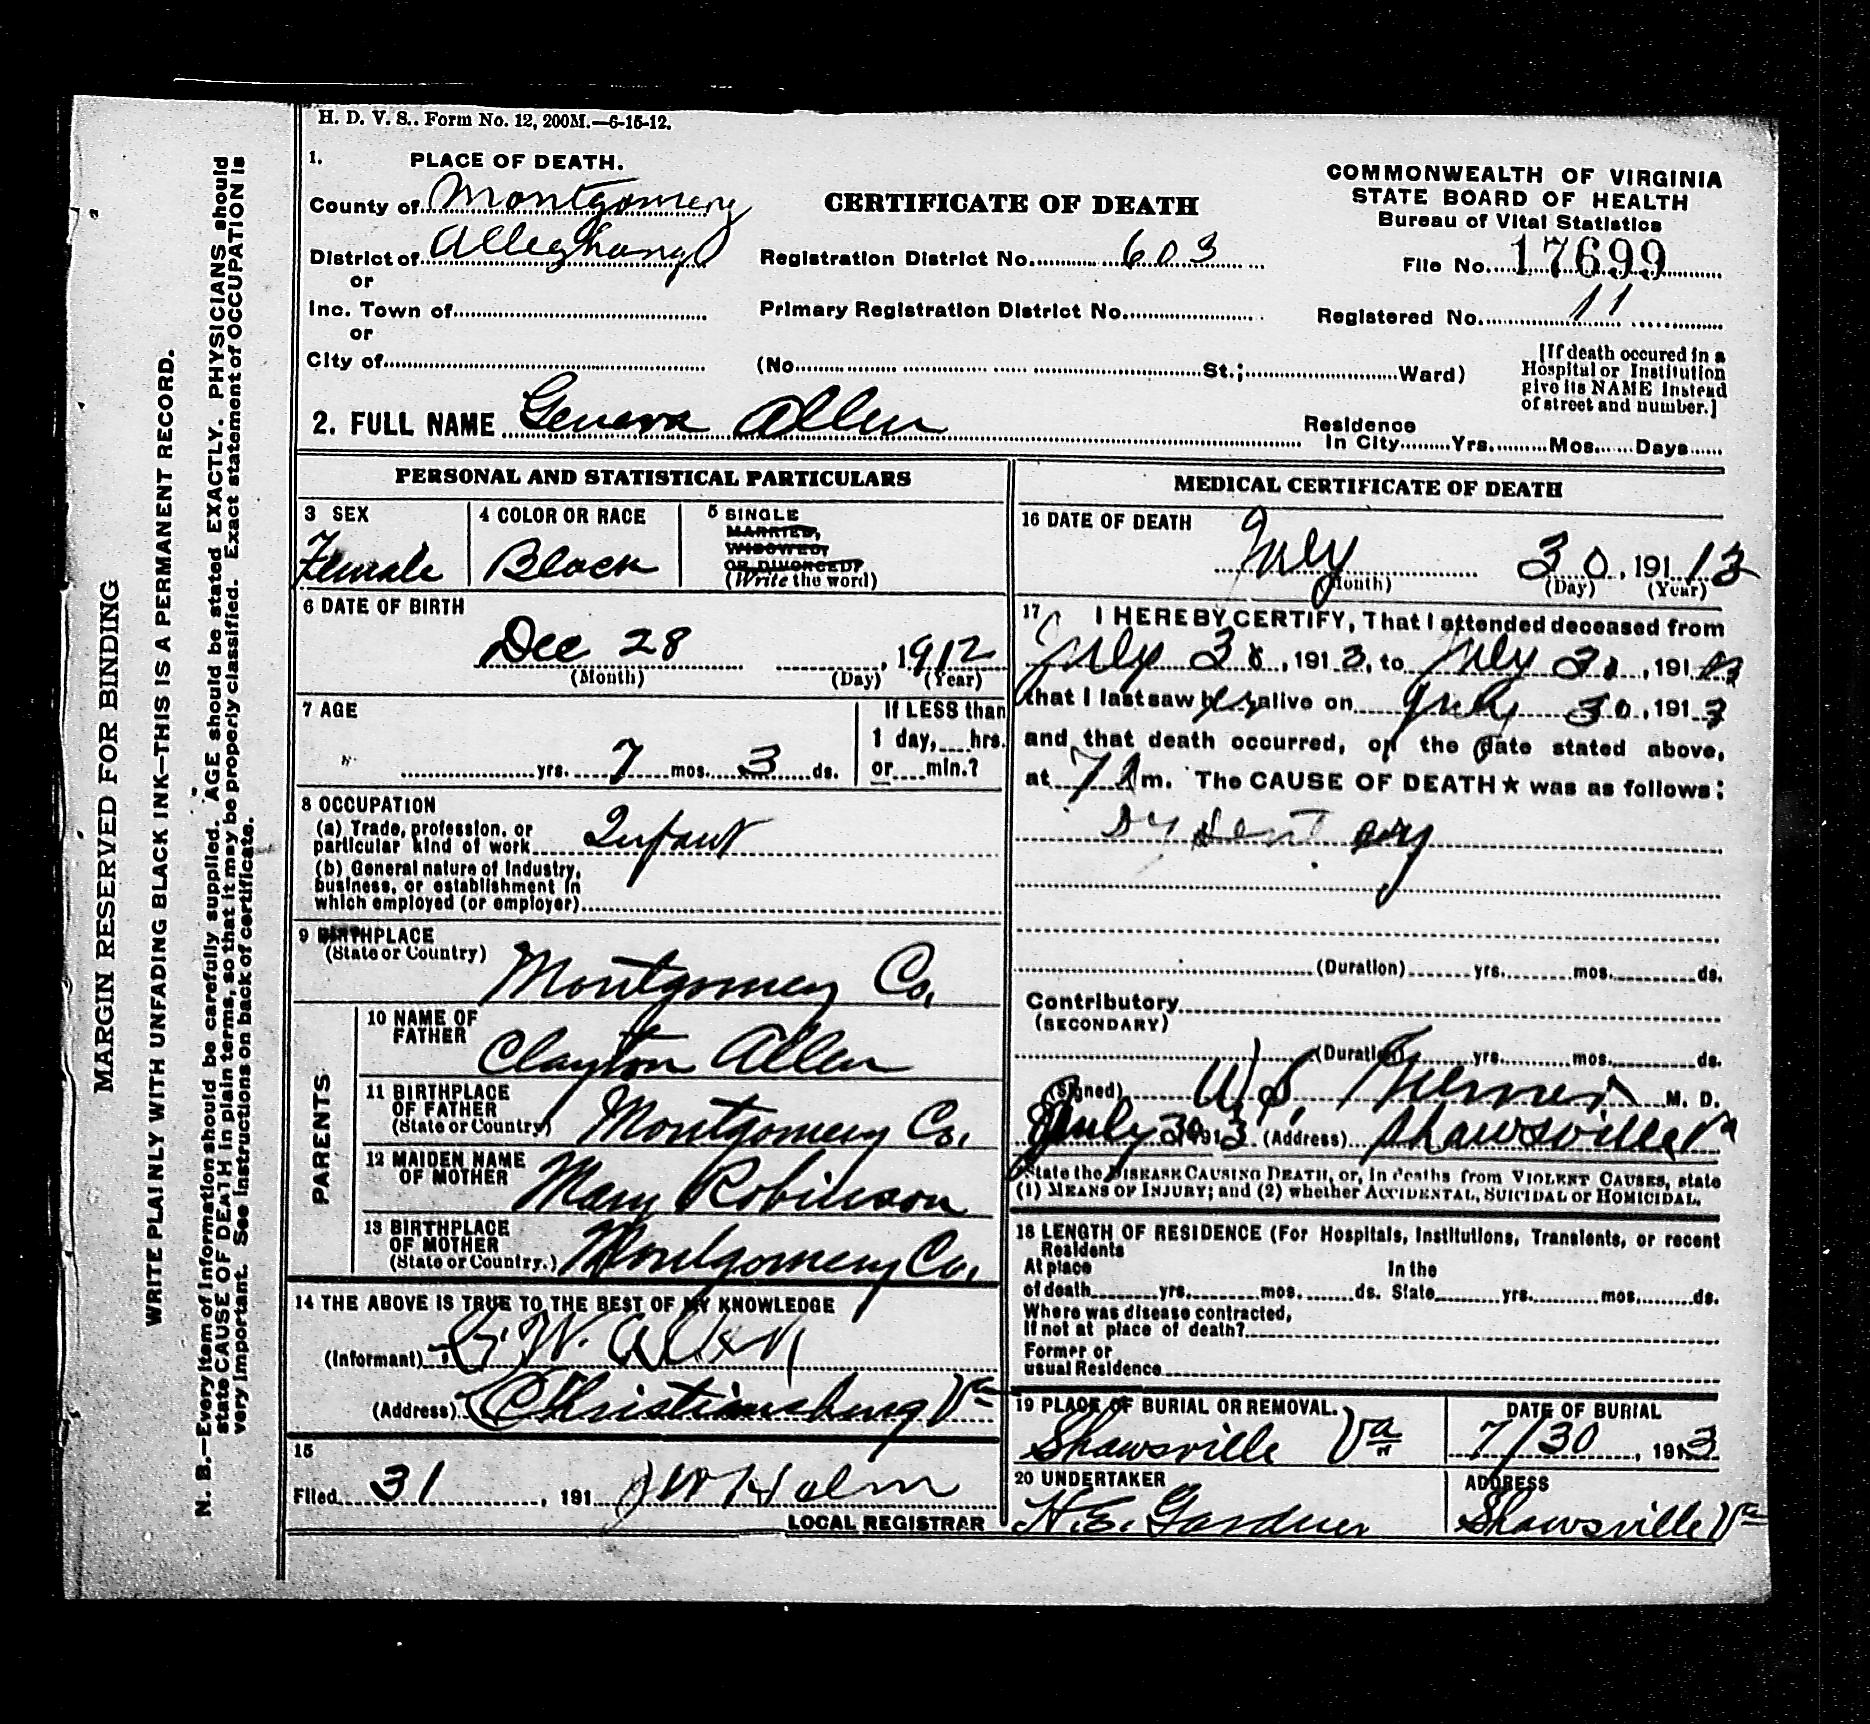 H. D. V. S.. Form No. 12, 200M.—6-15-12.
1. PLACE OF DEATH.
County of Montgomery
District of Alleghany
or
Inc. Town of
or
City of
CERTIFICATE OF DEATH
Registration District No. 603
Primary Registration District No.
(No. St.; Ward)
COMMONWEALTH OF VIRGINIA
STATE BOARD OF HEALTH
Bureau of Vital Statistics
File No. 17699
Registered No. 11
[If death occured in a
Hospital or Institution
give its NAME instead
of street and number.]
2. FULL NAME Geneva Allen
Residence
In City Yrs. Mos. Days
PERSONAL AND STATISTICAL PARTICULARS
3 SEX
Female
4 COLOR OR RACE
Black
5 SINGLE
MARRIED,
WIDOWED,
OR DIVORCED?
(Write the word)
6 DATE OF BIRTH
Dec 28 , 1912
(Month) (Day) (Year)
7 AGE
yrs. 7 mos. 3 ds.
If LESS than
1 day, hrs.
or min.?
8 OCCUPATION
(a) Trade, profession, or
particular kind of work Infant
(b) General nature of Industry,
business, or establishment in
which employed (or employer)
9 BIRTHPLACE
(State or Country)
Montgomery Co.
PARENTS
10 NAME OF
FATHER
Clayton Allen
11 BIRTHPLACE
OF FATHER
(State or Country)
Montgomery Co.
12 MAIDEN NAME
OF MOTHER
Mary Robinson
13 BIRTHPLACE
OF MOTHER
(State or Country.)
Montgomery Co.
14 THE ABOVE IS TRUE TO THE BEST OF MY KNOWLEDGE
(Informant) W. Allen
(Address) Christiansburg Va
15
Filed 31 , 191 J W Holm
LOCAL REGISTRAR
MEDICAL CERTIFICATE OF DEATH
16 DATE OF DEATH
July 30, 191 13
(Month) (Day) (Year)
17 I HEREBY CERTIFY, That I attended deceased from
July 30, 1913, to July , 191
that I last saw her alive on July 30, 1913
and that death occurred, on the date stated above,
at 7 m. The CAUSE OF DEATH★ was as follows:
Dysentery
(Duration) yrs. mos. ds.
Contributory
(SECONDARY)
(Duration) yrs. mos. ds.
(Signed) W. S. M. D.
July 30 1913 (Address) Shawsville Va
State the DISEASE CAUSING DEATH, or, in deaths from VIOLENT CAUSES, state
(1) MEANS OF INJURY; and (2) whether ACCIDENTAL, SUICIDAL or HOMICIDAL.
18 LENGTH OF RESIDENCE (For Hospitals, Institutions, Transients, or recent
Residents
At place In the
of death yrs. mos. ds. State yrs. mos. ds.
Where was disease contracted,
If not at place of death?
Former or
usual Residence
19 PLACE OF BURIAL OR REMOVAL.
Shawsville Va
DATE OF BURIAL
7/30, 1913
20 UNDERTAKER
H. E. Gardner
ADDRESS
Shawsville Va
MARGIN RESERVED FOR BINDING
WRITE PLAINLY WITH UNFADING BLACK INK—THIS IS A PERMANENT RECORD.
N. B.—Every item of information should be carefully supplied. AGE should be stated EXACTLY. PHYSICIANS should
state CAUSE OF DEATH in plain terms, so that it may be properly classified. Exact statement of OCCUPATION is
very important. See instructions on back of certificate.